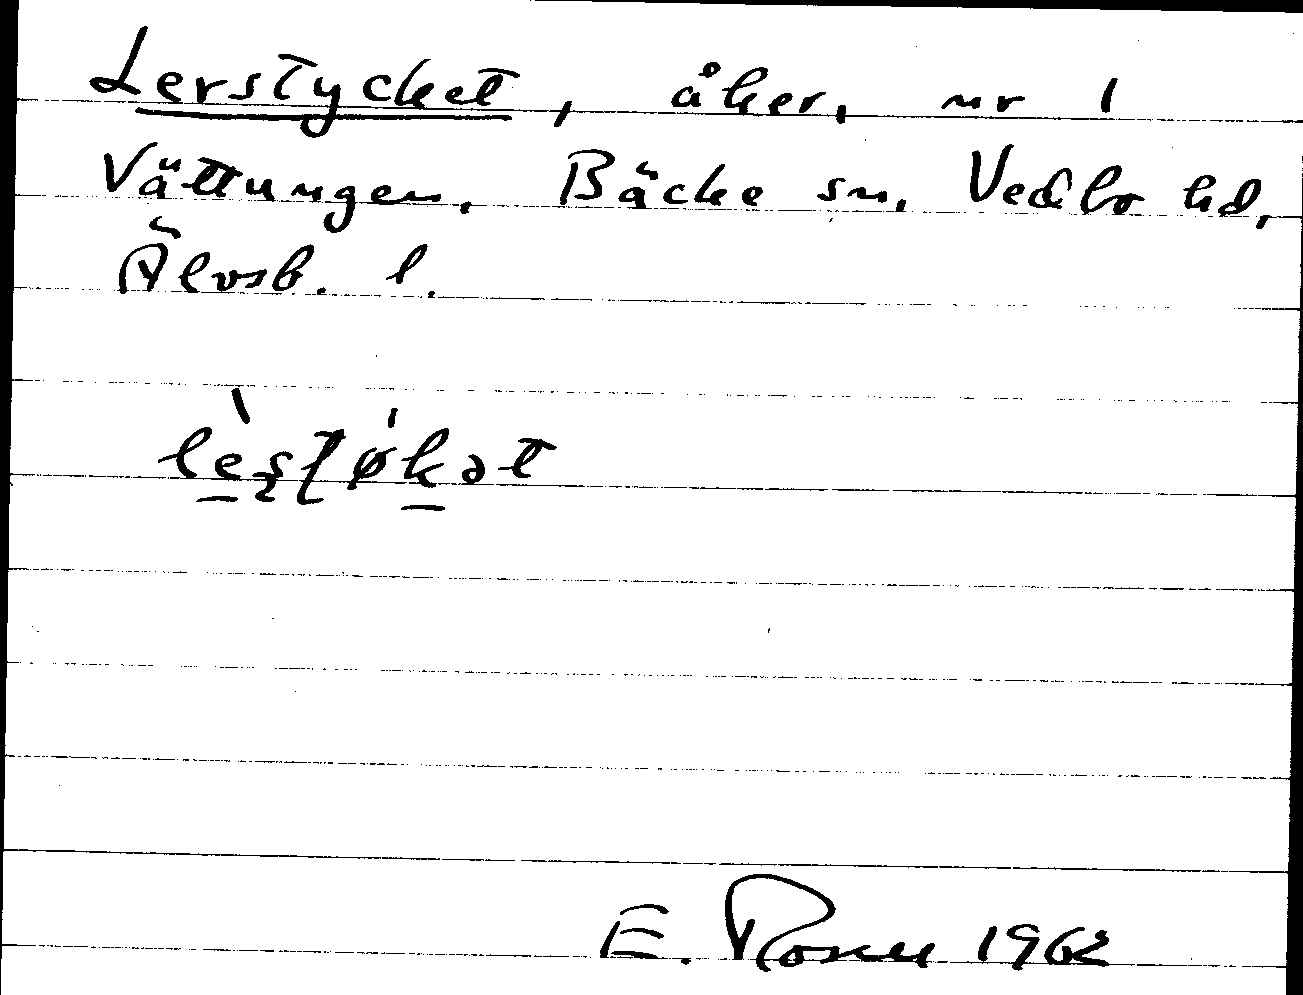 Lerstycket, åker, nr 1
Vättungen. Bäcke sn. Vedbo hd,
Älvsb. l.
lèʂʈøkət
E. Rosell 1962